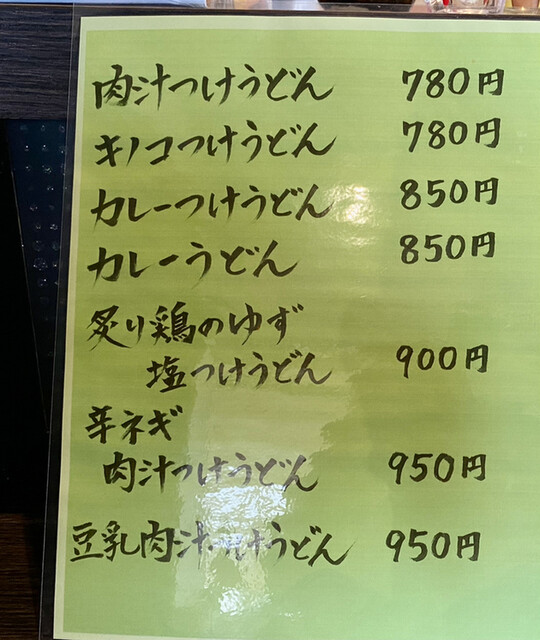 肉汁つけうどん 780円
キノコつけうどん 780円
カレーつけうどん 850円
カレーうどん 850円
炙り鶏のゆず
塩つけうどん 900円
辛ネギ
肉汁つけうどん 950円
豆乳肉汁つけうどん 950円